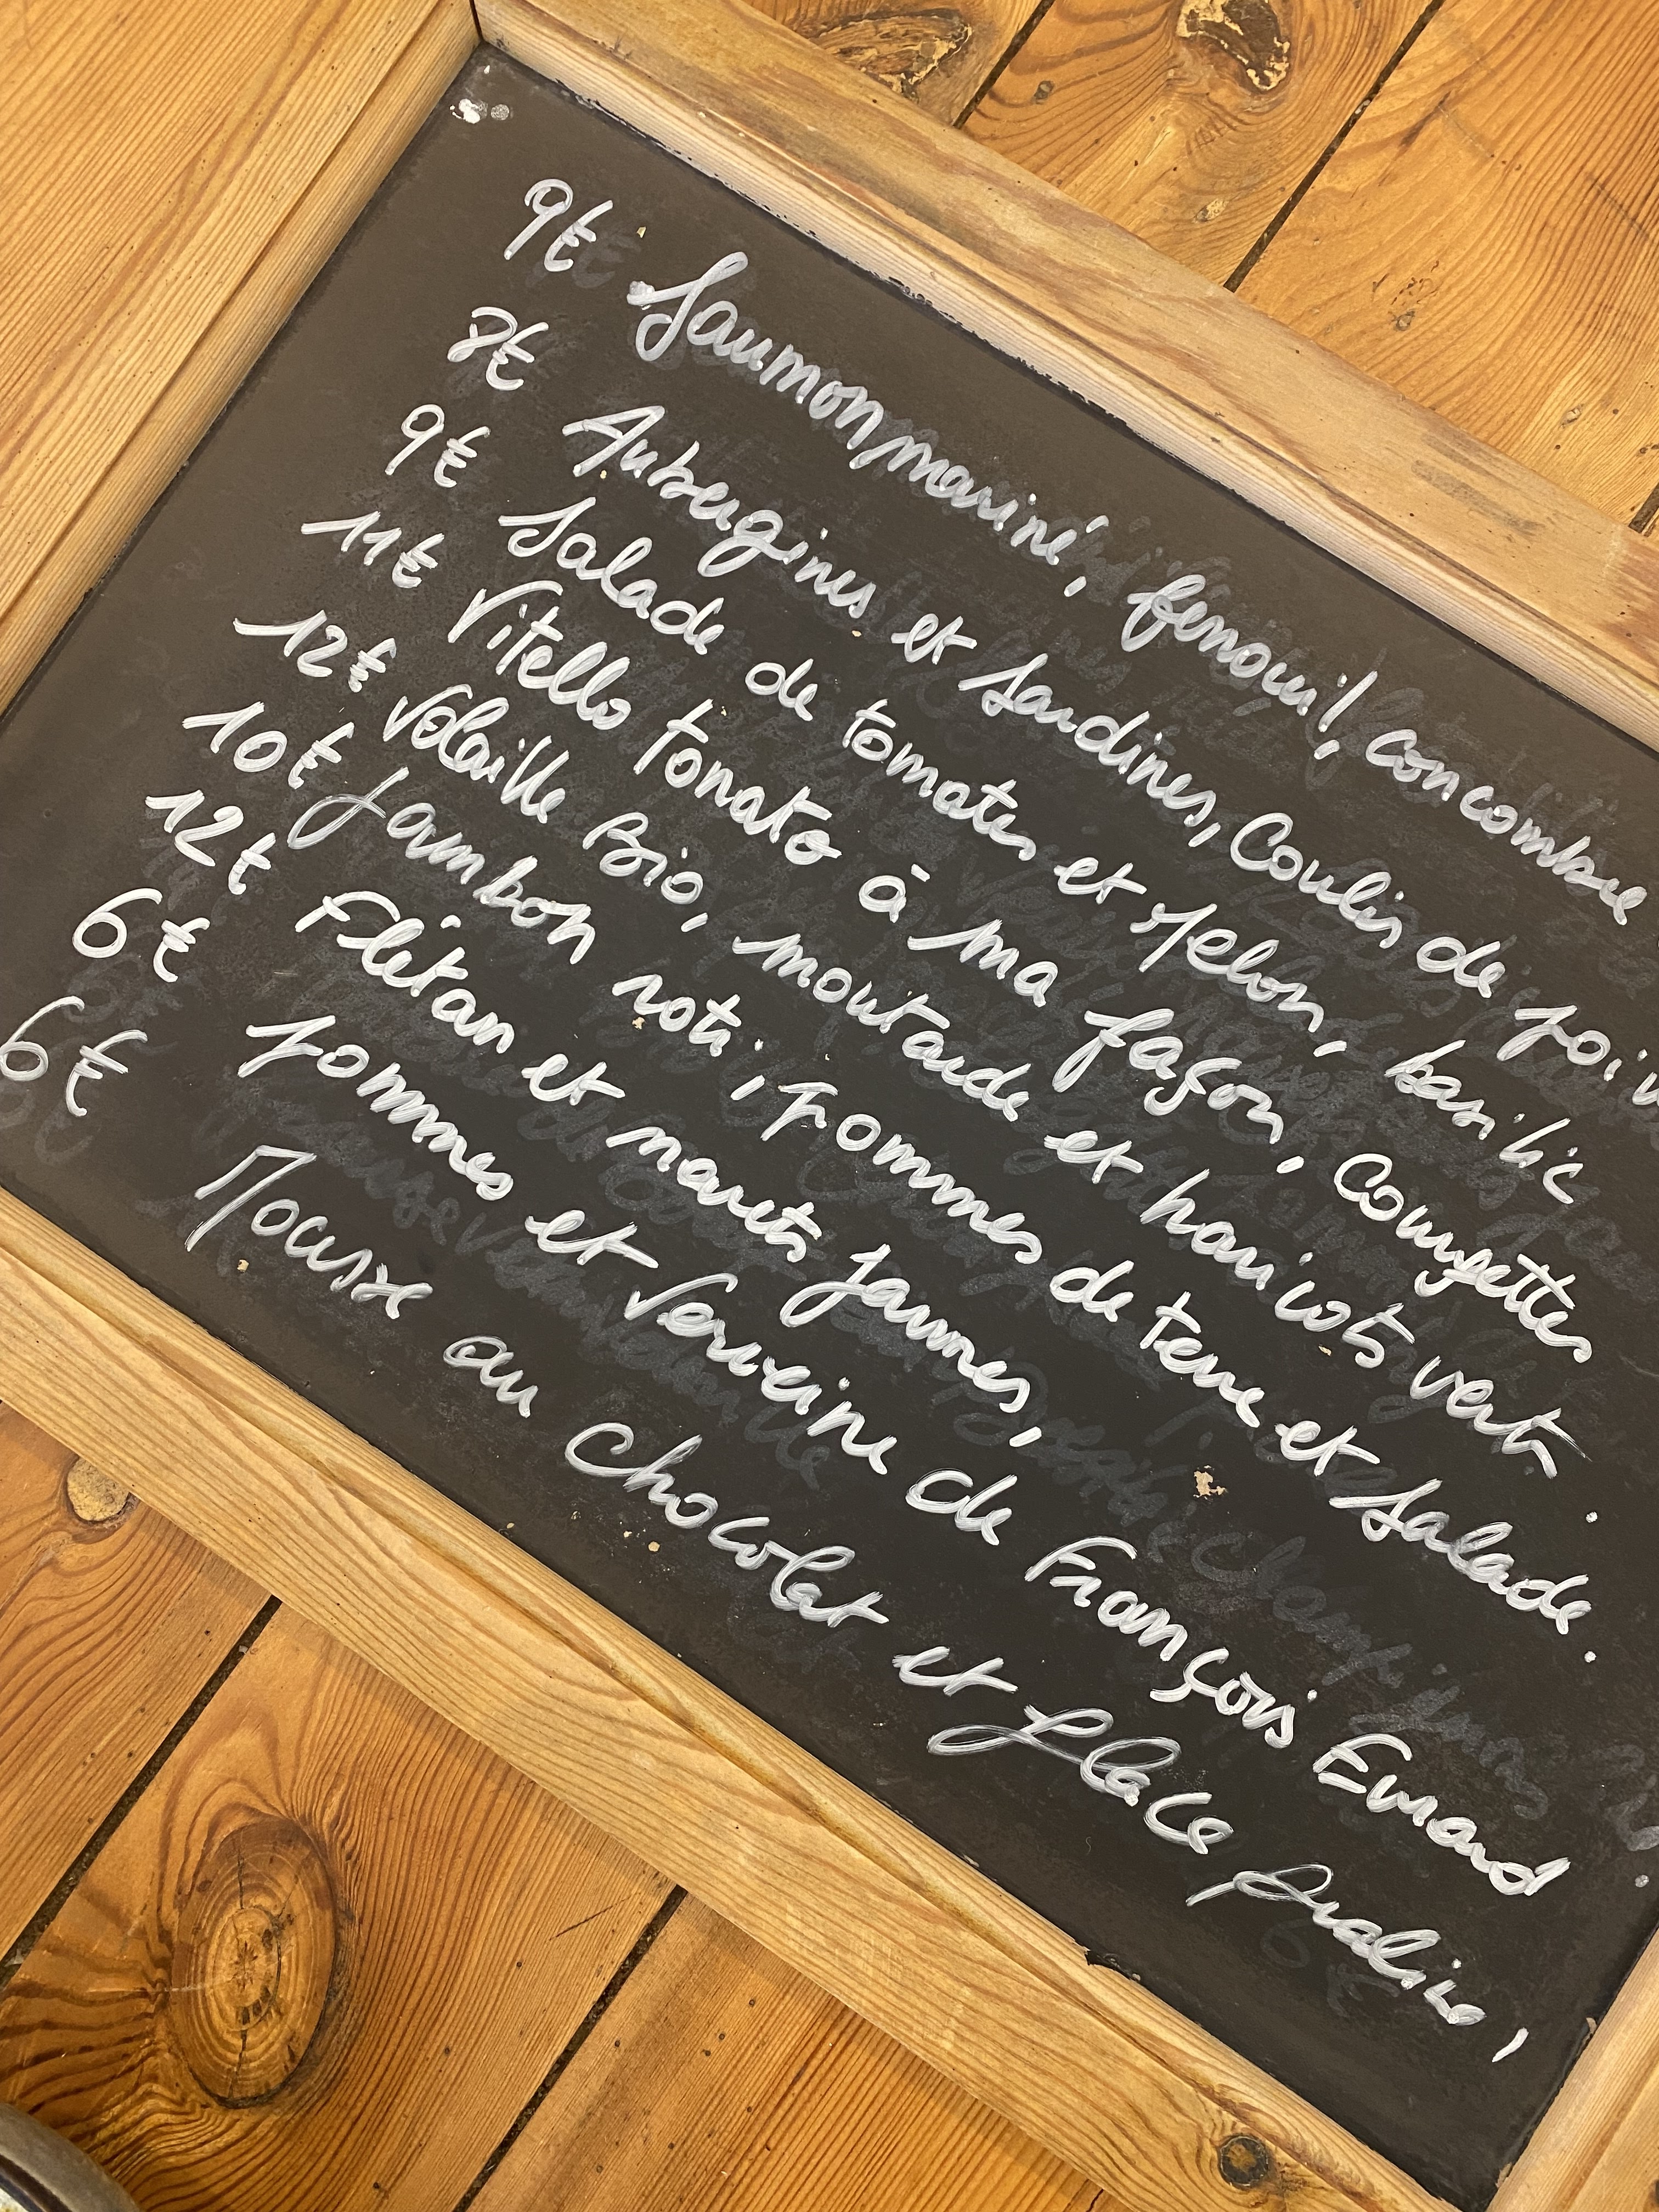 9€ Saumon mariné, fenouil, concombre
8€ Aubergines et Sardines, Coulis de poiv
9€ Salade de tomates et Melon, basilic
11€ Vitello tonato à ma façon, Courgettes
12€ Volaille Bio, moutarde et haricots vert.
10€ Jambon roti, pommes de terre et Salade.
12€ Flétan et navets jaunes,
6€ pommes et Verveine de François Emard
6€ Mousse au chocolat et glace praliné,